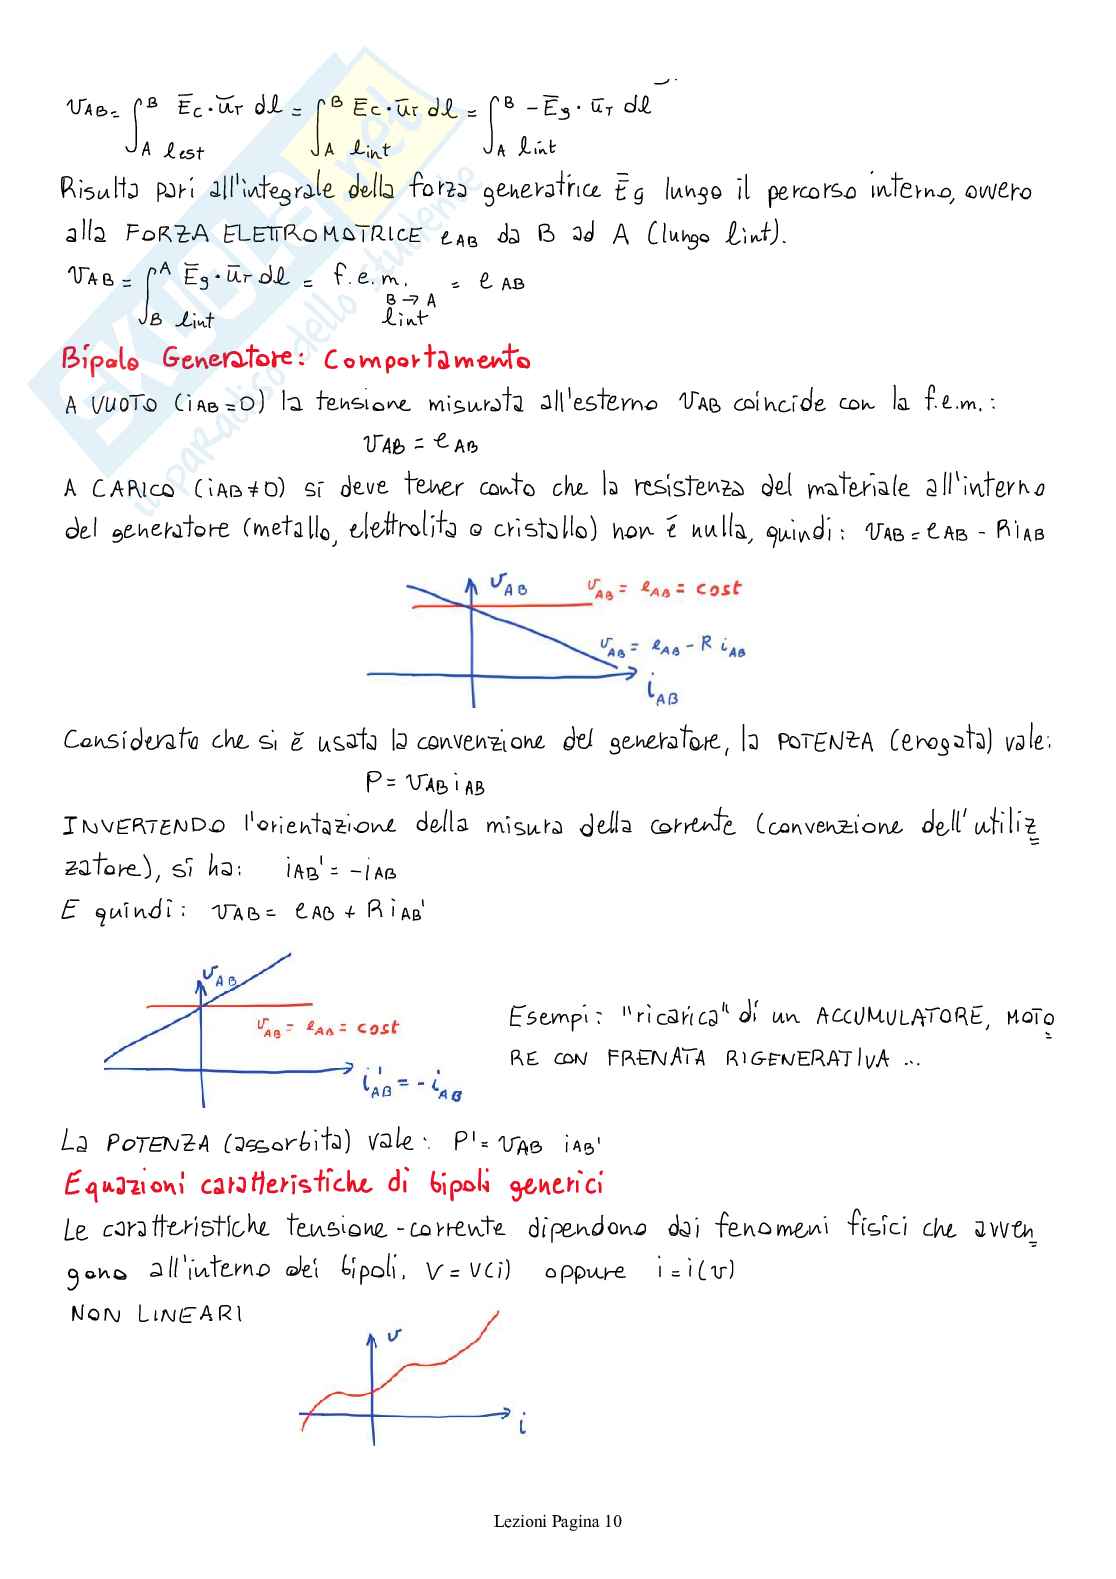 v_AB = ∫_A^B_lest Ē_c · ū_T dl = ∫_A^B_lint Ē_c · ū_T dl = ∫_A^B_lint -Ē_g · ū_T dl
Risulta pari all'integrale della forza generatrice Ē_g lungo il percorso interno, ovvero
alla FORZA ELETTROMOTRICE e_AB da B ad A (lungo lint).
v_AB = ∫_B^A_lint Ē_g · ū_T dl = f.e.m. B→A lint = e_AB
Bipolo Generatore: Comportamento
A VUOTO (i_AB=0) la tensione misurata all'esterno v_AB coincide con la f.e.m.:
v_AB = e_AB
A CARICO (i_AB≠0) si deve tener conto che la resistenza del materiale all'interno
del generatore (metallo, elettrolita o cristallo) non è nulla, quindi: v_AB = e_AB - R i_AB
v_AB
v_AB = e_AB = cost
v_AB = e_AB - R i_AB
i_AB
Considerato che si è usata la convenzione del generatore, la POTENZA (erogata) vale:
P = v_AB i_AB
INVERTENDO l'orientazione della misura della corrente (convenzione dell'utiliz
zatore), si ha: i_AB' = -i_AB
E quindi: v_AB = e_AB + R i_AB'
v_AB
v_AB = e_AB = cost
i'_AB = - i_AB
Esempi: "ricarica" di un ACCUMULATORE, MOTO
RE CON FRENATA RIGENERATIVA ...
La POTENZA (assorbita) vale: P' = v_AB i_AB'
Equazioni caratteristiche di bipoli generici
Le caratteristiche tensione-corrente dipendono dai fenomeni fisici che avven
gono all'interno dei bipoli. v = v(i) oppure i = i(v)
NON LINEARI
v
i
Lezioni Pagina 10
SKUOLA.net
il paradiso dello studente